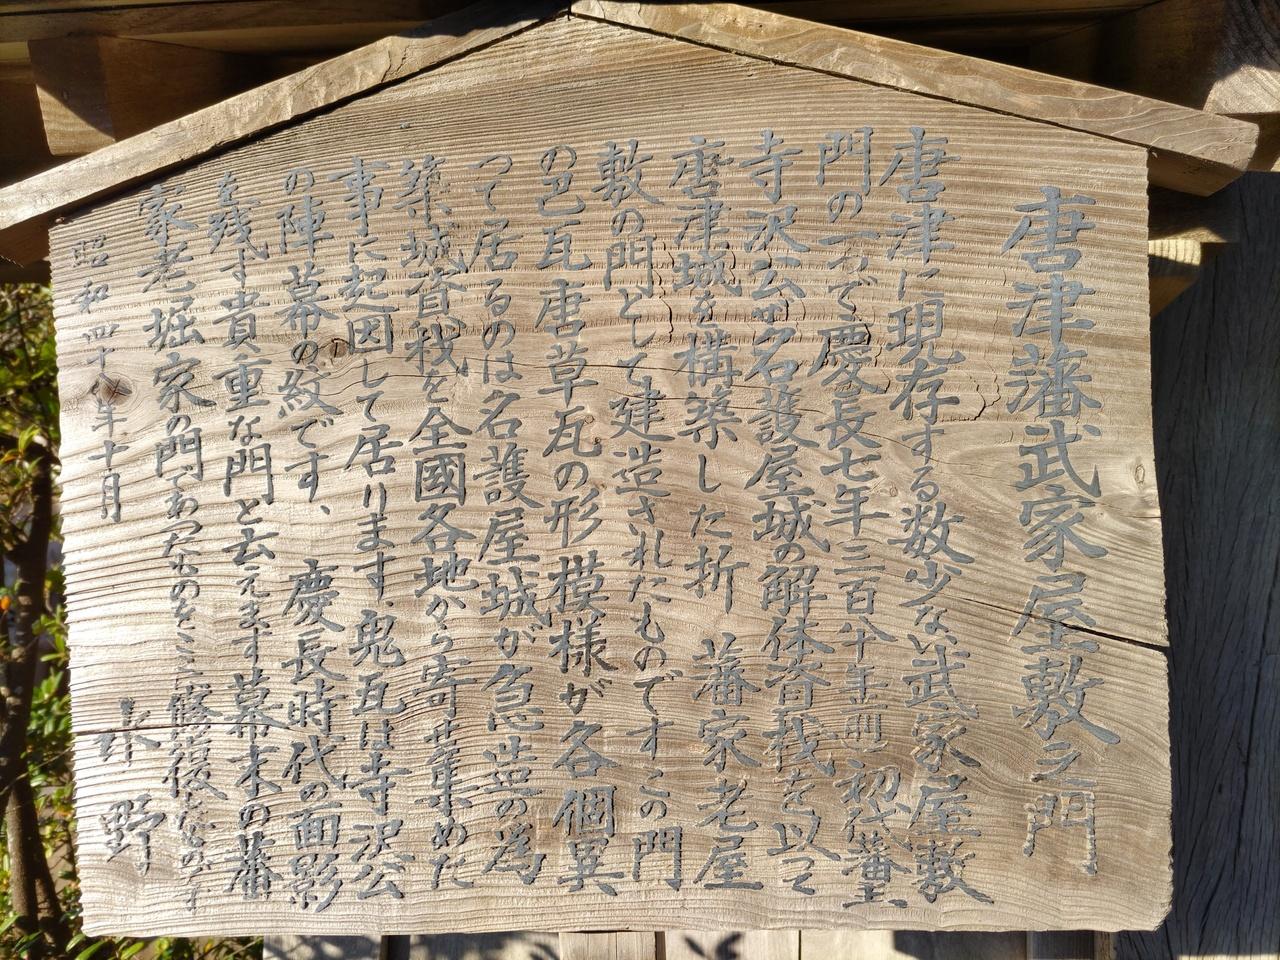 唐津藩武家屋敷之門
唐津に現存する数少ない武家屋敷
門の一つで慶長七年三百八十年前初代藩主
寺沢公が名護屋城の解体資材を以つて
唐津城を構築した折 藩家老屋
敷の門として建造されたものですこの門
の巴瓦唐草瓦の形 模様が各個異
つて居るのは名護屋城が急造の為
築城資材を全國各地から寄せ集めた
事に起因して居ります、鬼瓦は寺沢公
の陣幕の紋です、 慶長時代の面影
を残す貴重な門と云えます幕末の藩
家老堀家の門であつたものを 修復したものです
昭和四十八年十月
野